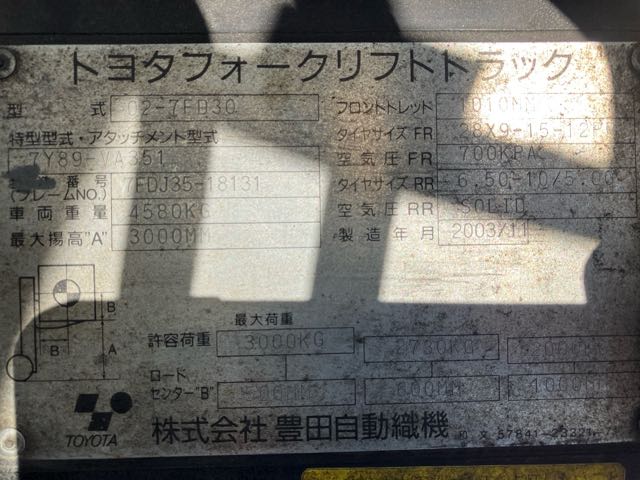 トヨタフォークリフトトラック
型 式 02-7FD30 フロントトレッド 1010MM
特型型式・アタッチメント型式 タイヤサイズFR 28X9-15-12P
7Y89-VA351 空気圧FR 700KPA
番号 (フレームNO.) 7FDJ35-18131 タイヤサイズRR 6.50-10/5.00
車両重量 4580KG 空気圧RR SOLID
最大揚高"A" 3000MM 製造年月 2003/11
B
A
B
最大荷重
許容荷重 3000KG 2700KG
ロード
センター"B" 500MM 600MM 1000MM
TOYOTA 株式会社 豊田自動織機